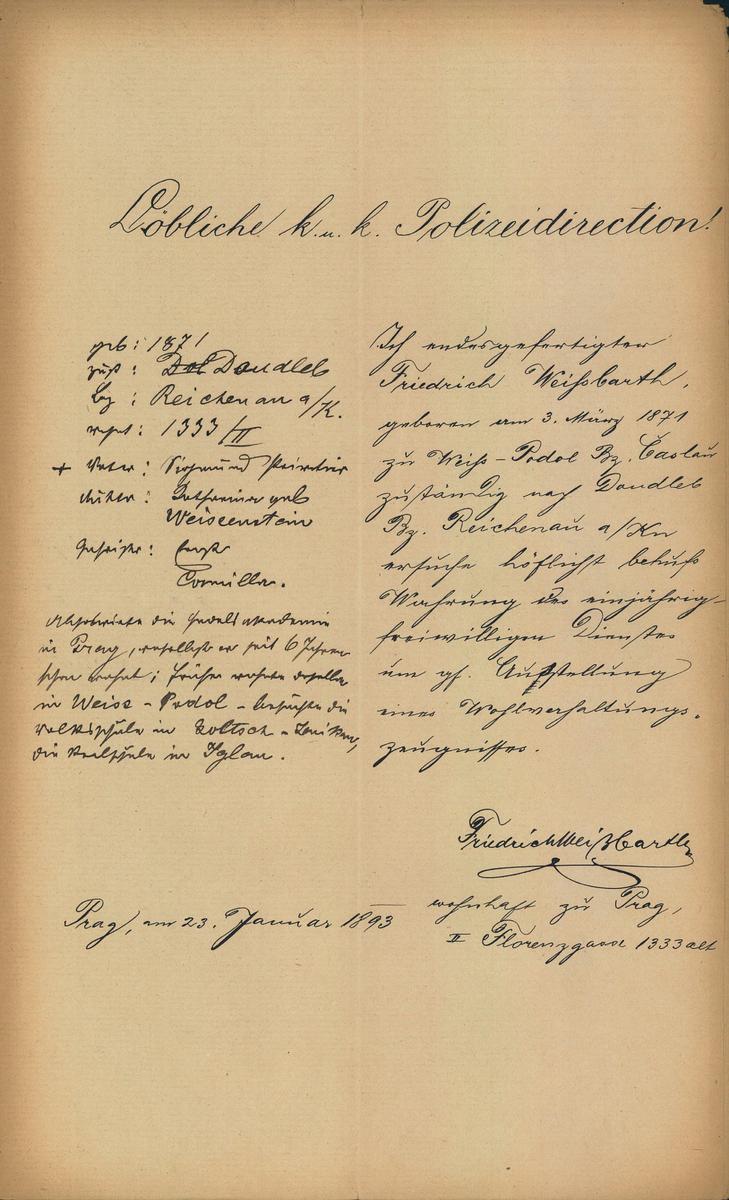 Löbliche k. u. k. Polizeidirection!
geb: 1871
zust: Dol Daudleb
Bz: Reichenau a/K.
wohnt: 1333/II
+ Vater: Sigmund Privatier
Mutter: Katharina geb
Weissenstein
Geschwister: Ernst
Camilla.
die Handelsakademie
in Prag, woselbst er seit 6 Jahren
schon wohnt; früher wohnte derselbe
in Weiss-Podol - besuchte die
Volksschule in Goltsch-Jenikau,
die Realschule in Iglau.
Ich endesgefertigter
Friedrich Weißbarth,
geboren am 3. März 1871
zu Weiss-Podol Bz. Časlau
zuständig nach Daudleb
Bz. Reichenau a/Kn
ersuche höflichst behufs
Wahrung des einjährig-
freiwilligen Dienstes
um gf. Ausstellung
eines Wohlverhaltungs-
zeugnisses.
Friedrich Weißbarth
wohnhaft zu Prag,
II Florenzgasse 1333 alt
Prag, am 23. Januar 1893